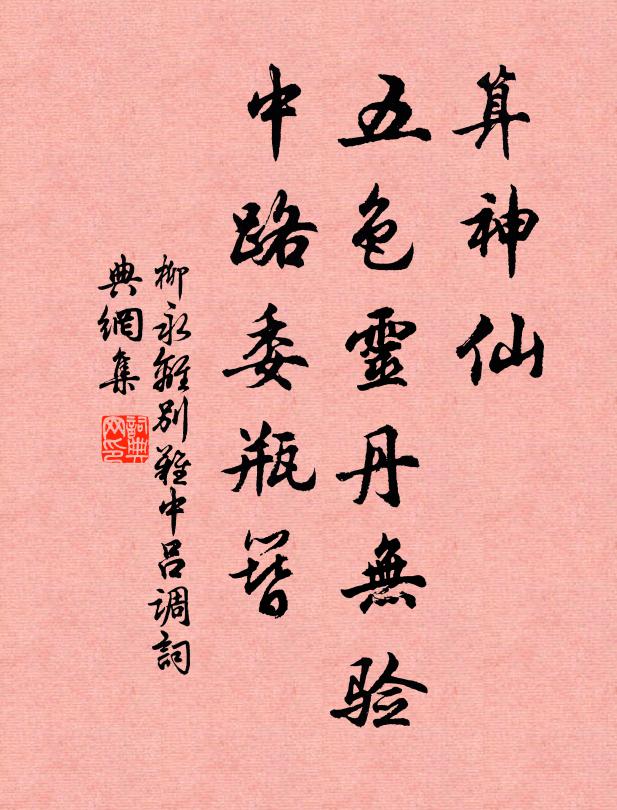 算神仙
五色靈丹無验
中路委瓶簪
柳永離別難中吕调詞
典網集
詞典
网印